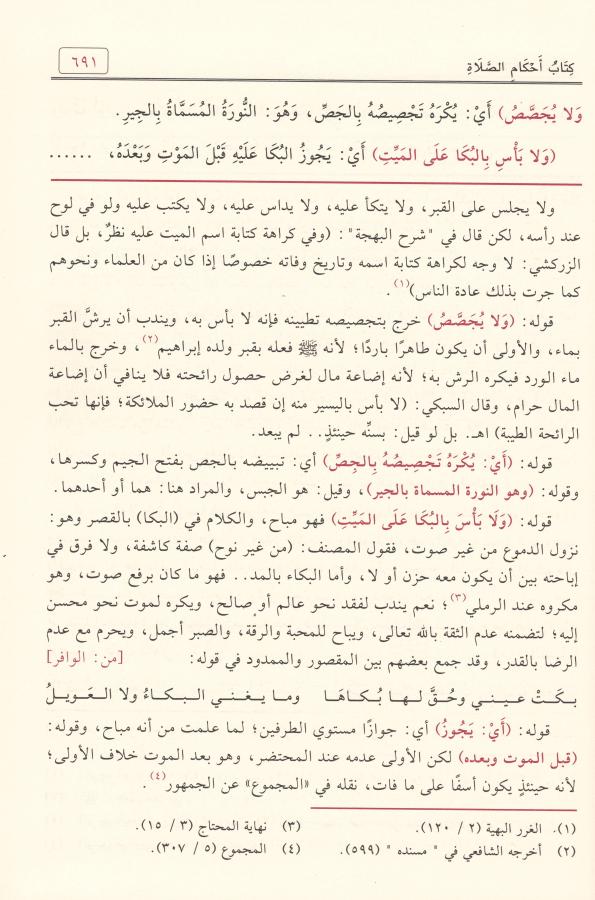 كِتَابُ أَحْكَامِ الصَّلَاةِ
٦٩١
وَلا يُجَصَّصُ) أَيْ: يُكْرَهُ تَجْصِيصُهُ بِالجَصِّ، وَهُوَ: النُّورَةُ المُسَمَّاةُ بِالجِيرِ.
(وَلا بَأْسَ بِالبُكَا عَلَى المَيِّتِ) أَيْ: يَجُوزُ البُكَا عَلَيْهِ قَبْلَ المَوْتِ وَبَعْدَهُ، ......
ولا يجلس على القبر، ولا يتكأ عليه، ولا يداس عليه، ولا يكتب عليه ولو في لوح
عند رأسه، لكن قال في "شرح البهجة": (وفي كراهة كتابة اسم الميت عليه نظرٌ، بل قال
الزركشي: لا وجه لكراهة كتابة اسمه وتاريخ وفاته خصوصًا إذا كان من العلماء ونحوهم
كما جرت بذلك عادة الناس)(١).
قوله: (وَلا يُجَصَّصُ) خرج بتجصيصه تطيينه فإنه لا بأس به، ويندب أن يرشَّ القبر
بماء، والأولى أن يكون طاهرًا باردًا؛ لأنه ﷺ فعله بقبر ولده إبراهيم(٢)، وخرج بالماء
ماء الورد فيكره الرش به؛ لأنه إضاعة مال لغرض حصول رائحته فلا ينافي أن إضاعة
المال حرام، وقال السبكي: (لا بأس باليسير منه إن قصد به حضور الملائكة؛ فإنها تحب
الرائحة الطيبة) اهـ. بل لو قيل: بسنِّه حينئذٍ.. لم يبعد.
قوله: (أَيْ: يُكْرَهُ تَجْصِيصُهُ بِالجِصِّ) أي: تبييضه بالجص بفتح الجيم وكسرها،
وقوله: (وهو النورة المسماة بالجير)، وقيل: هو الجبس، والمراد هنا: هما أو أحدهما.
قوله: (وَلَا بَأْسَ بَالبُكَا عَلَى المَيِّتِ) فهو مباح، والكلام في (البكا) بالقصر وهو:
نزول الدموع من غير صوت، فقول المصنف: (من غير نوح) صفة كاشفة، ولا فرق في
إباحته بين أن يكون معه حزن أو لا، وأما البكاء بالمد.. فهو ما كان برفع صوت، وهو
مكروه عند الرملي(٣)؛ نعم يندب لفقد نحو عالم أو صالح، ويكره لموت نحو محسن
إليه؛ لتضمنه عدم الثقة بالله تعالى، ويباح للمحبة والرقة، والصبر أجمل، ويحرم مع عدم
الرضا بالقدر، وقد جمع بعضهم بين المقصور والممدود في قوله: [من: الوافر]
بكَتْ عيني وحُقَّ لها بُكاهَا وما يغني البكاءُ ولا العَويلُ
قوله: (أَيْ: يَجُوزُ) أي: جوازًا مستوي الطرفين؛ لما علمت من أنه مباح، وقوله:
(قبل الموت وبعده) لكن الأولى عدمه عند المحتضر، وهو بعد الموت خلاف الأولى؛
لأنه حينئذٍ يكون أسفًا على ما فات، نقله في «المجموع» عن الجمهور(٤).
(١). الغرر البهية (٢ / ١٢٠).
(٢) أخرجه الشافعي في " مسنده " (٥٩٩).
(٣) نهاية المحتاج (٣ / ١٥).
(٤) المجموع (٥ / ٣٠٧).